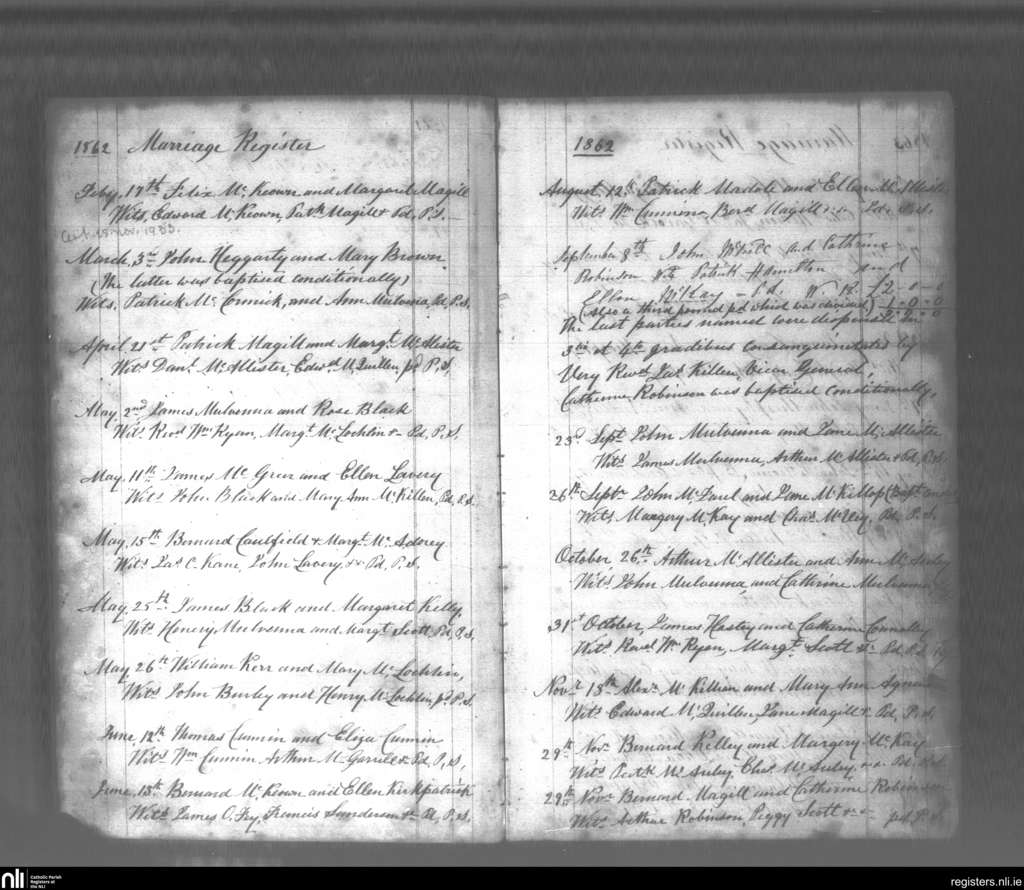 1862 Marriage Register
Feby. 17th Felix McKeown and Margaret Magill
Wits. Edward McKeown, Patk Magill & Pd. P.S.
Cert. 15 Nov. 1933.
March, 3rd John Heggarty and Mary Brown
(The latter was baptised conditionally)
Wits. Patrick McCormick, and Ann Mulvenna Pd. P.S.
April 21st Patrick Magill and Margt. McAllister
Wits Danl. McAllister, Edwd. McQuillen, pd P.S,
May, 2nd, James Mulvenna and Rose Black
Wits Revd Wm Ryan, Margt. McLochlin &- Pd, P.S.
May, 11th James Mc and Ellen Lavery
Wits John Black and Mary Ann McKillen, Pd. P.S.
May, 15th Bernard Caulfield & Margt. Mc
Wits Jas C. Kane, John Lavery, &c Pd. P.S.
May, 25th James Black and Margaret Kelly,
Wits Henery Mulvenna and Margt Scott Pd, P.S,
May, 26th William Kerr and Mary McLochlin,
Wits John Burby and Henry McLochlin, pd. P.S.
June, 12th Thomas Cunnin and Eliza Cunnin
Wits Wm Cunnin Arthur & Pd, P,S,
June, 18th Bernard McKeown and Ellen Kirkpatrick
Wits James O. , Francis Sanderson &- Pd, P.S.
1862
August, 12th Patrick and Ellen McAllister
Wits Wm , Bernd Magill &c. Pd. P.S.
September 8th John and Cathrine
Robinson Wts Patrick Hamilton and
Ellen - Pd. £2-0-0
(also a third pound pd which was divided) 1-0-0
The last parties named were dispensed in
3tio et 4to gradibus consanguinitatis by
Very Revd Jas Killen, Vicar General,
Catherine Robinson was baptised conditionally,
23d. Sept. John Mulvenna and Jane McAllister
Wits James Mulvenna, Arthur McAllister & Pd, P.S.
26th Septr John and Jane McKillop
Wits Margery McKay and Chas. Pd, P.S.
October 26th Arthur McAllister and Ann Mc
Wits John Mulvenna, and Cathrine Mulvenna
31st October, James and Catherine Connolly
Wits Revd Wm Ryan, Margt. Scott &c Pd. P.S.
Novr 18th Alexr. McKillian and Mary Ann Agnew
Wits Edward McQuillen, Jane Magill & Pd, P.S.
29th Novr Bernard Kelley and Margery McKay
Wits Patk Mc , Chas Mc &c Pd P.S.
29th Novr Bernard Magill and Catherine Robinson
Wits Arthur Robinson, Peggy Scott &c- pd P.S.
nli
Catholic Parish
Registers at
the NLI
registers.nli.ie